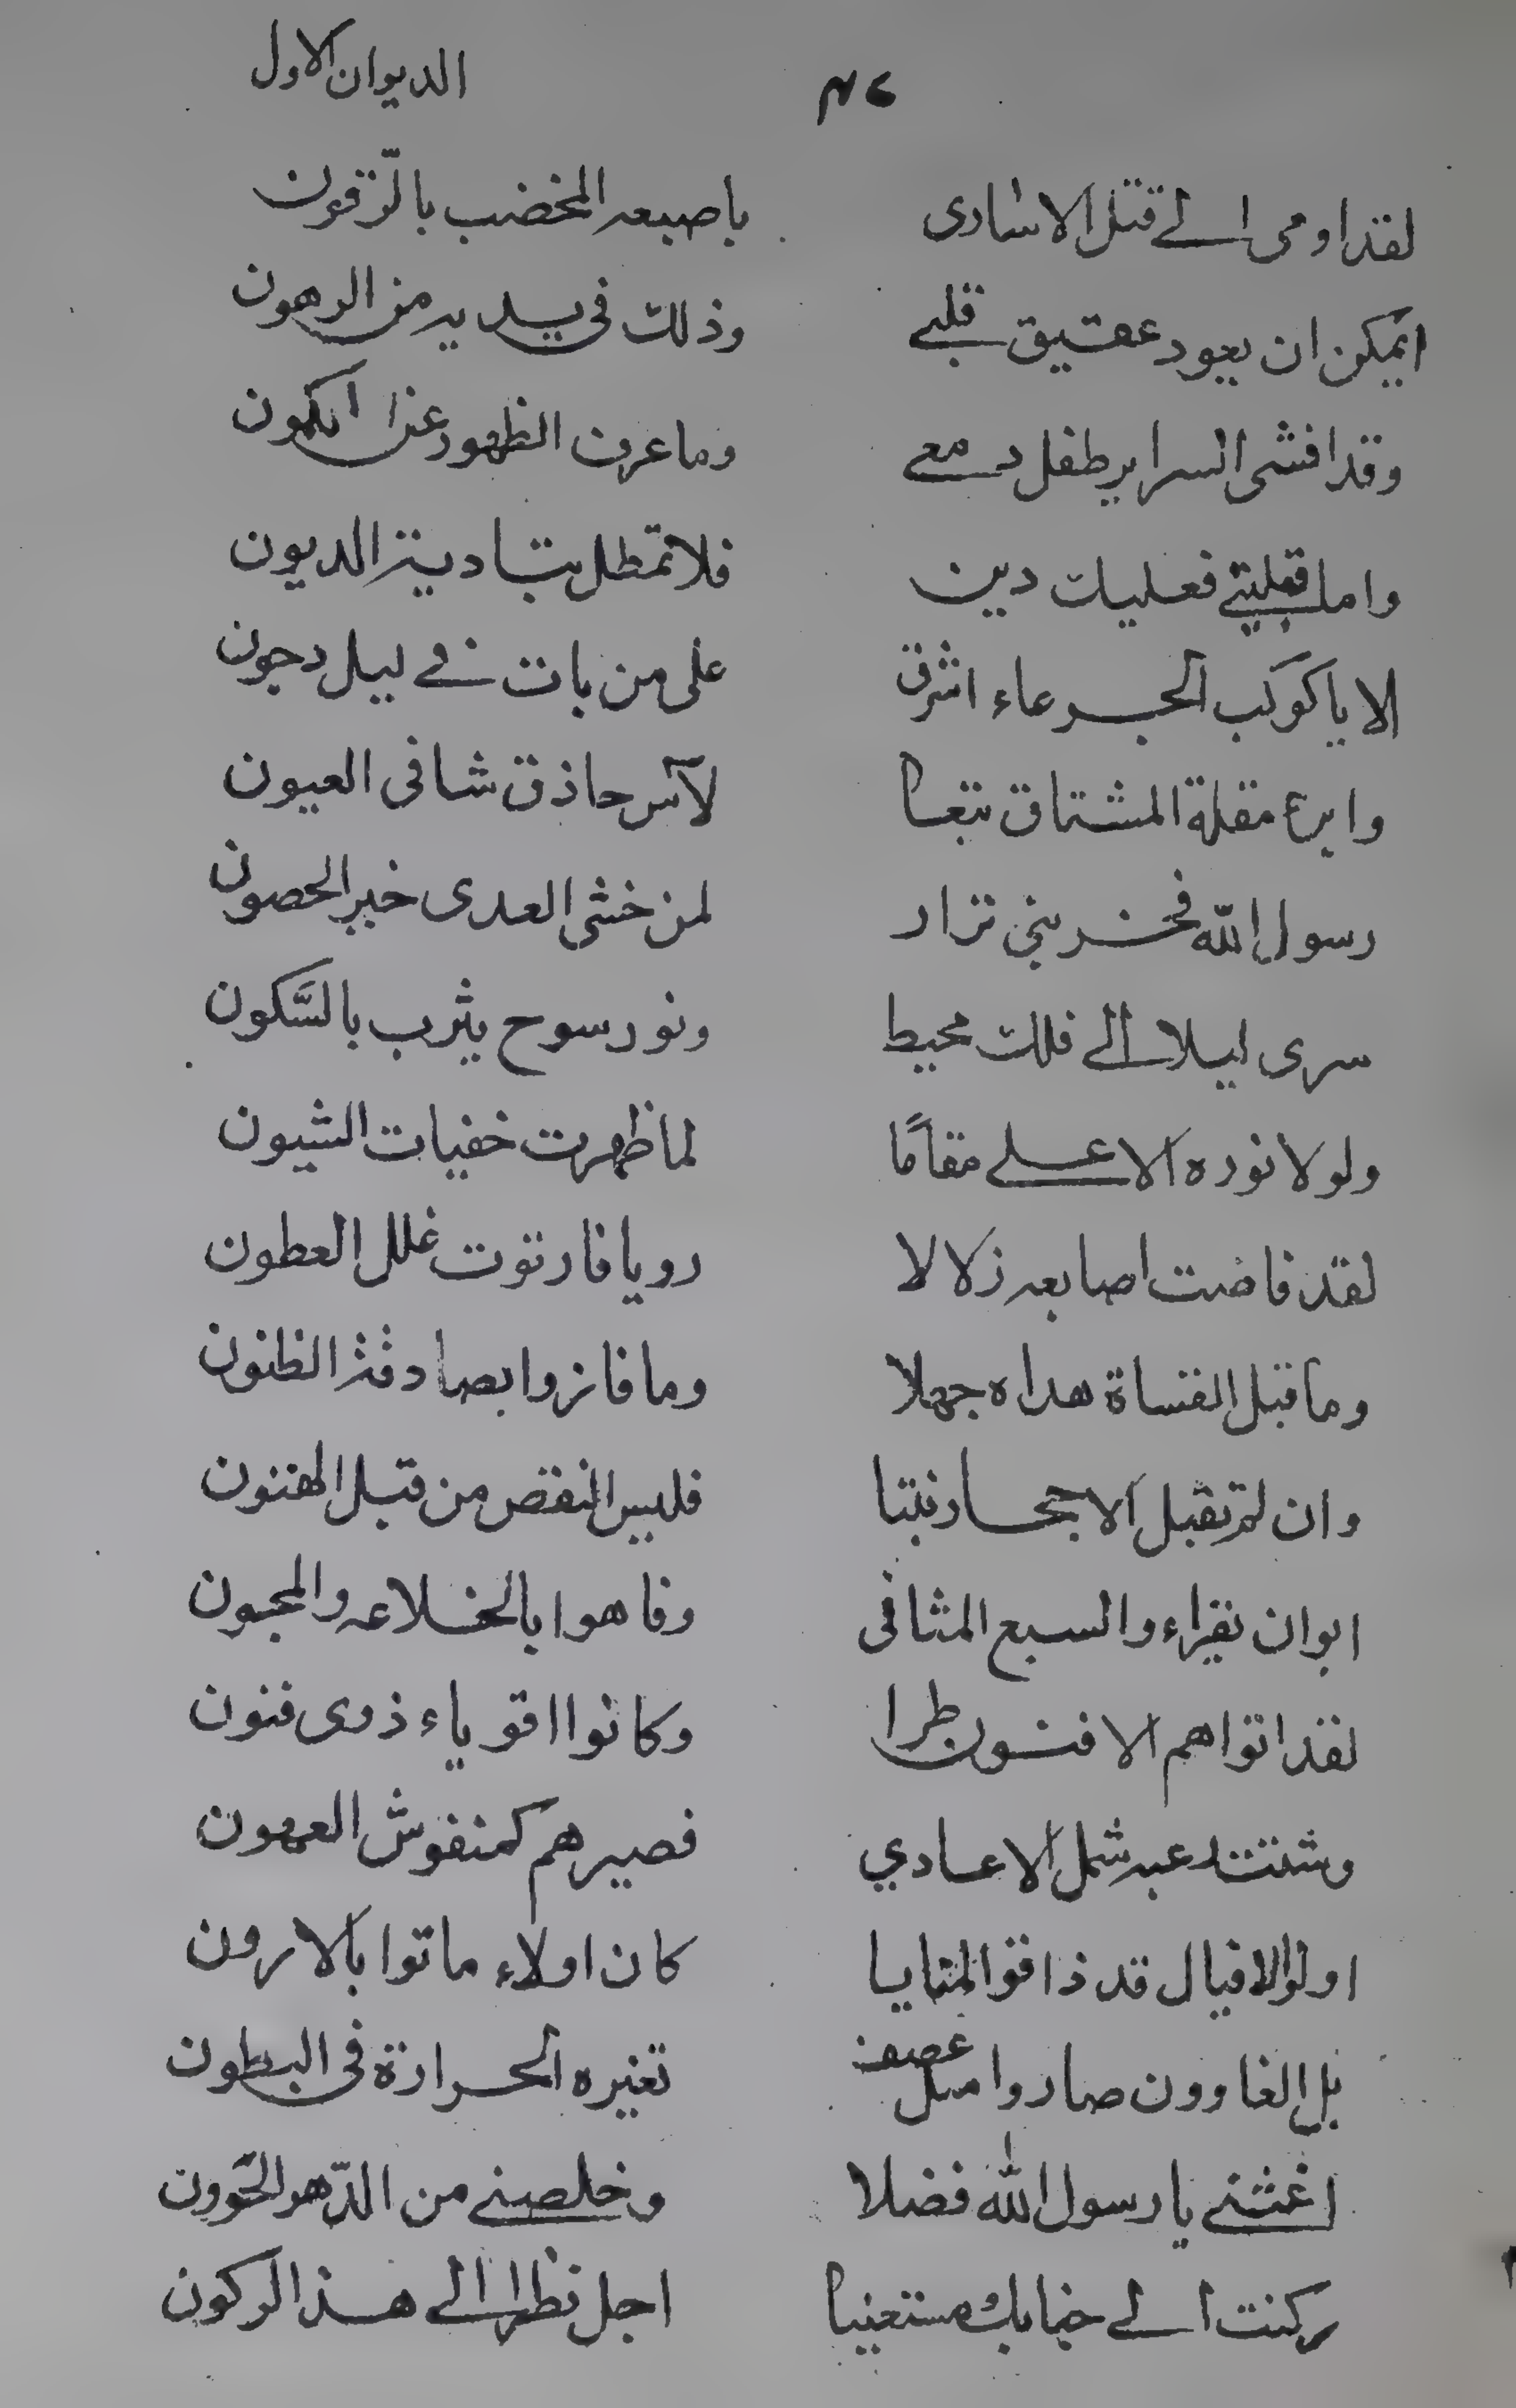 الديوان الاول
لقد اومى الى قتل الاسارى باصبعه المخضب بالزرقون
ايمكن ان يعود عقيق قلبي وذلك في يديه من الرهون
وقد افشى السراير طفل دمعي وما عرف الظهور عن الكمون
واما قبلتي فعليك دين فلا تمطل بتادية الديون
الا يا كوكب الجرعاء اشرق على من بات في ليل دجون
وابرء مقلة المشتاق تتعا لآس حاذق شافى العيون
رسول الله فخر بني نزار لمن خشى العدى خير الحصون
سرى ليلا الى فلك محيط ونور سوح يثرب بالسَّكون
ولولا نوره الاعلى مقامًا لما ظهرت خفيات الشيون
لقد فاضت اصابعه زلالا رويا فارتوت غلل العطون
وما قبل القساة هداه جهلا وما فازوا بصادقة الظنون
وان لم تقبل الاحجار نبتا فليس النقص من قبل الهتون
ابوا ان نقراء والسبع المثانى وفاهوا بالخلاعه والمجون
لقد اتواهم الافنون طرا وكانوا اقوياء ذوى فنون
وشتت رعبه شمل الاعادي فصيرهم كمنفوش العهون
اولوا الافيال قد ذاقوا المنايا كان اولاء ماتوا بالارون
بل الغاوون صاروا مثل عصف تغيره الحرارة في البطون
اغثني يا رسول الله فضلا وخلصني من الدّهر الخوون
ركنت الى جنابك مستعينا اجل نظرا الى هذا الركون